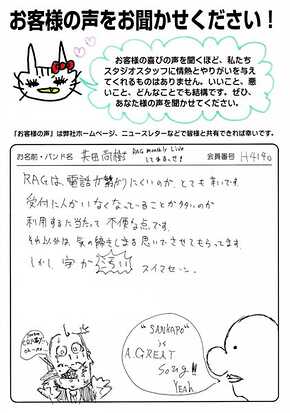 お客様の声をお聞かせください！
お客様の喜びの声を聞くほど、私たち
スタジオスタッフに情熱とやりがいを与え
てくれるものはありません。いいこと、悪
いこと、どんなことでも結構です。ぜひ、
あなた様の声を聞かせてください。
「お客様の声」は弊社ホームページ、ニュースレターなどで皆様と共有できれば幸いです。
お名前・バンド名
RAG monthly Live
会員番号 H4190
RAGは、電話が繋がりにくいのが、とても
受付に人がいなくなっていることが多いのが
利用するに当たって不便な点です。
それ以外は、
しかし字が きたない スイマセーン。
"SANKAPO"
is
A GREAT
Song!!
Yeah